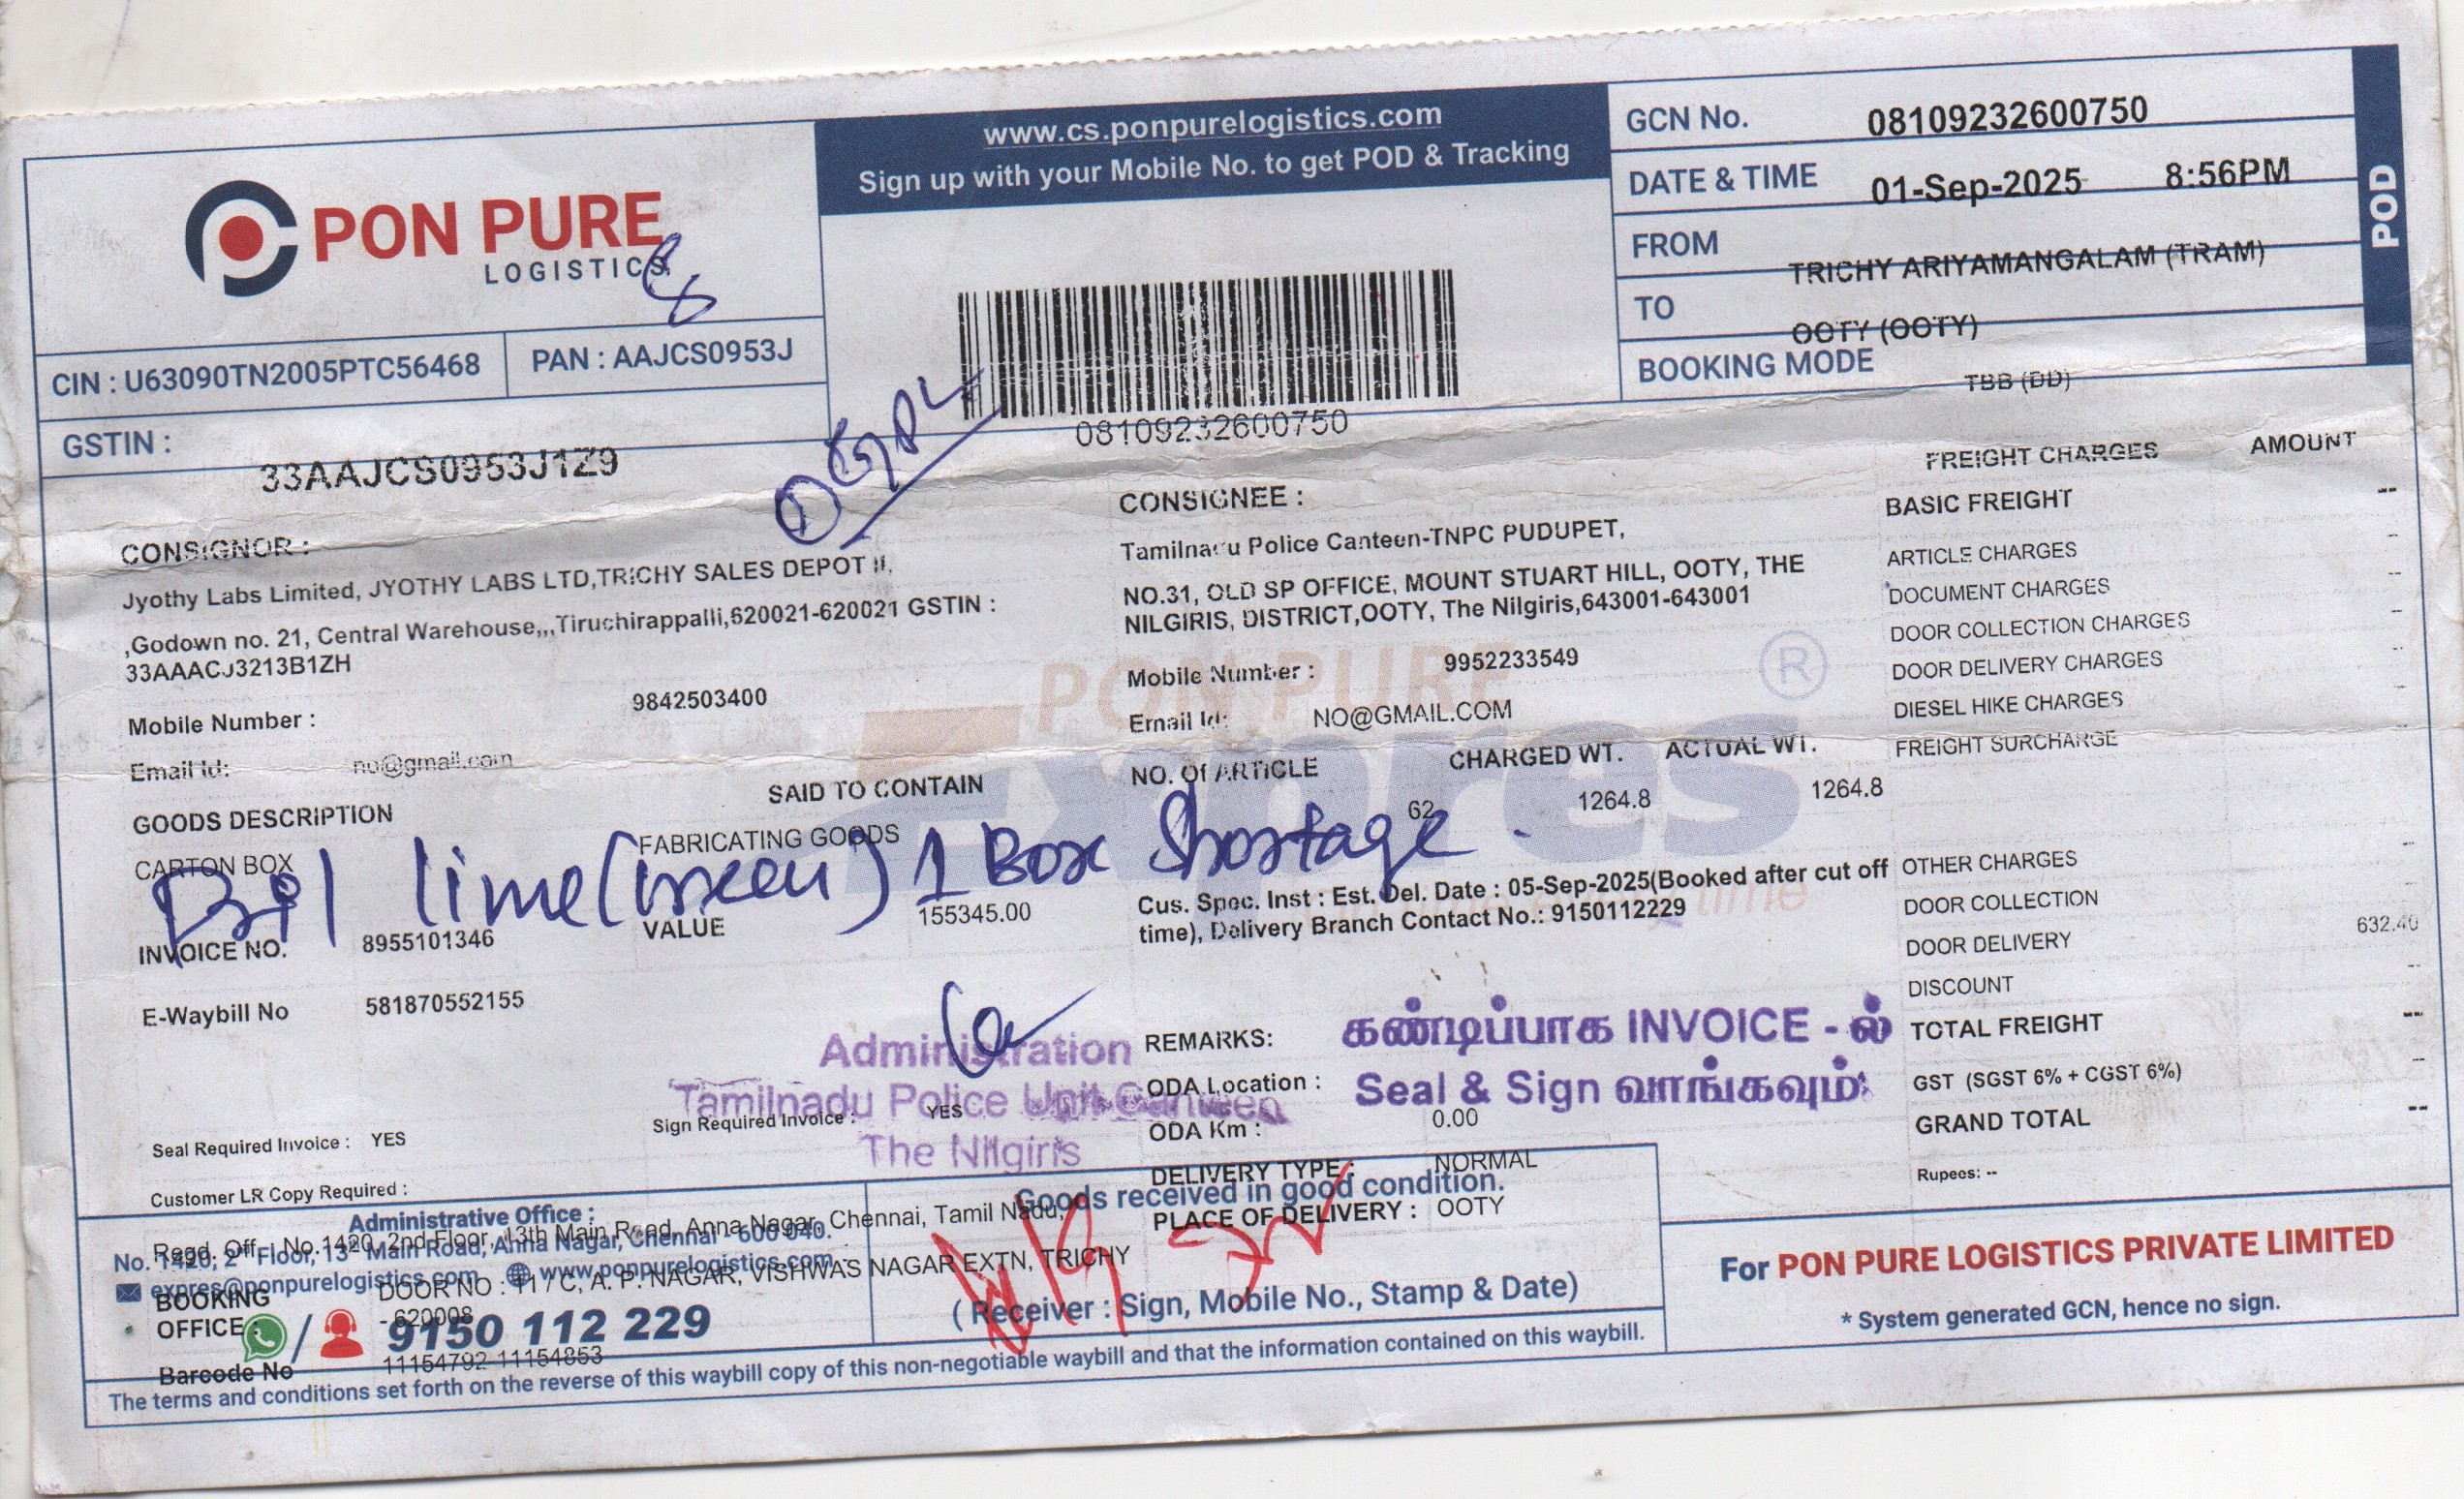 www.cs.ponpurelogistics.com
Sign up with your Mobile No. to get POD & Tracking
PON PURE
LOGISTICS
CIN : U63090TN2005PTC56468
PAN : AAJCS0953J
GSTIN :
33AAJCS0953J1Z9
08109232600750
GCN No. 08109232600750
DATE & TIME 01-Sep-2025 8:56PM
FROM TRICHY ARIYAMANGALAM (TRAM)
TO OOTY (OOTY)
BOOKING MODE TBB (DD)
POD
CONSIGNOR :
Jyothy Labs Limited, JYOTHY LABS LTD,TRICHY SALES DEPOT II,
,Godown no. 21, Central Warehouse,,,Tiruchirappalli,620021-620021 GSTIN :
33AAACJ3213B1ZH
Mobile Number : 9842503400
Email Id: no@gmail.com
CONSIGNEE :
Tamilnadu Police Canteen-TNPC PUDUPET,
NO.31, OLD SP OFFICE, MOUNT STUART HILL, OOTY, THE
NILGIRIS, DISTRICT,OOTY, The Nilgiris,643001-643001
Mobile Number : 9952233549
Email Id: NO@GMAIL.COM
PON PURE
Expres
®
time
GOODS DESCRIPTION
CARTON BOX
SAID TO CONTAIN
FABRICATING GOODS
NO. Of ARTICLE
62
CHARGED WT.
1264.8
ACTUAL WT.
1264.8
lime (Green) 1 Box Shortage
INVOICE NO. 8955101346
VALUE 155345.00
E-Waybill No 581870552155
Cus. Spec. Inst : Est. Del. Date : 05-Sep-2025(Booked after cut off
time), Delivery Branch Contact No.: 9150112229
Administration
Tamilnadu Police Unit Canteen
The Nilgiris
Seal Required Invoice : YES
Sign Required Invoice : YES
Customer LR Copy Required :
REMARKS:
கண்டிப்பாக INVOICE - ல்
Seal & Sign வாங்கவும்
ODA Location :
ODA Km : 0.00
DELIVERY TYPE : NORMAL
PLACE OF DELIVERY : OOTY
FREIGHT CHARGES AMOUNT
BASIC FREIGHT --
ARTICLE CHARGES --
DOCUMENT CHARGES --
DOOR COLLECTION CHARGES --
DOOR DELIVERY CHARGES --
DIESEL HIKE CHARGES --
FREIGHT SURCHARGE --
OTHER CHARGES --
DOOR COLLECTION --
DOOR DELIVERY 632.40
DISCOUNT --
TOTAL FREIGHT --
GST (SGST 6% + CGST 6%) --
GRAND TOTAL --
Rupees: --
Administrative Office :
No. 1420, 2nd Floor, 13th Main Road, Anna Nagar, Chennai - 600 040.
expres@ponpurelogistics.com www.ponpurelogistics.com
9150 112 229
Regd. Off. : No.1420, 2nd Floor, 13th Main Road, Anna Nagar, Chennai, Tamil Nadu,
BOOKING OFFICE : DOOR NO : 11 / C, A. P. NAGAR, VISHWAS NAGAR EXTN, TRICHY
- 620008
Barcode No 11154792-11154853
Goods received in good condition.
( Receiver : Sign, Mobile No., Stamp & Date)
For PON PURE LOGISTICS PRIVATE LIMITED
* System generated GCN, hence no sign.
The terms and conditions set forth on the reverse of this waybill copy of this non-negotiable waybill and that the information contained on this waybill.